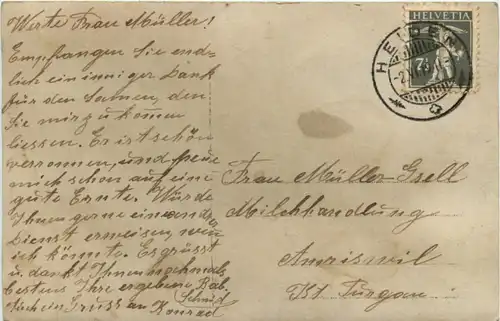 Werte Frau Müller!
Empfangen Sie end-
lich ein inniger Dank
für den Samen, den
Sie mir zu komen
liessen. Er ist schön
verronnen, und freue
mich schon auf eine
gute Ernte. Würde
Ihnen gerne ein ander
Dienst erweisen, wen
ich könnte. Es grüsst
u. dankt Ihnen nochmals
bestens Ihre ergebene Bab.
Schmid
Auch ein Gruss an Konrad
HELVETIA
7½
HEIDEN
Frau Müller-Gsell
Milchhandlung
Amriswil
Kt. Turgau